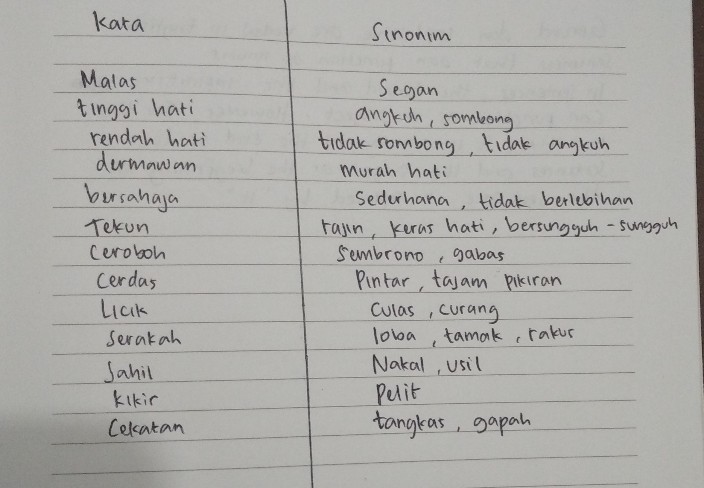 Kata Sinonim
Malas Segan
tinggi hati angkuh, sombong
rendah hati tidak sombong, tidak angkuh
dermawan murah hati
bersahaja Sederhana, tidak berlebihan
Tekun rajin, keras hati, bersungguh-sungguh
Ceroboh Sembrono, gabas
Cerdas Pintar, tajam pikiran
Licik Culas, curang
Serakah loba, tamak, rakus
Jahil Nakal, usil
kikir Pelit
Cekatan tangkas, gapah